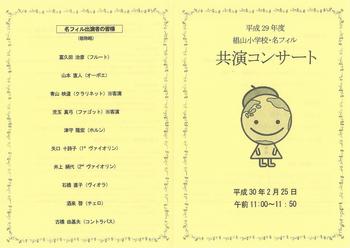 名フィル出演者の皆様
(敬称略)
富久田 治彦 (フルート)
山本 直人 (オーボエ)
青山 映道 (クラリネット) ※客演
児玉 真弓 (ファゴット) ※客演
津守 隆宏 (ホルン)
矢口 十詩子 (1st ヴァイオリン)
井上 絹代 (2nd ヴァイオリン)
石橋 直子 (ヴィオラ)
酒泉 啓 (チェロ)
古橋 由基夫 (コントラバス)
平成 29 年度
椙山小学校・名フィル
共演コンサート
平成 30 年 2 月 25 日
午前 11:00～11:50